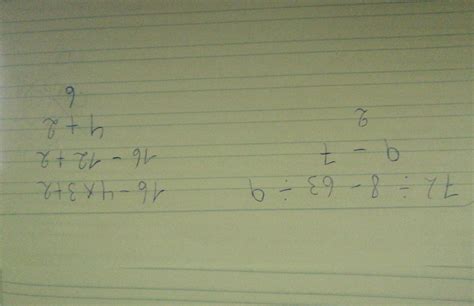 72 ÷ 8 - 63 ÷ 9
9 - 7
2
16 - 4 x 3 + 2
16 - 12 + 2
4 + 2
6